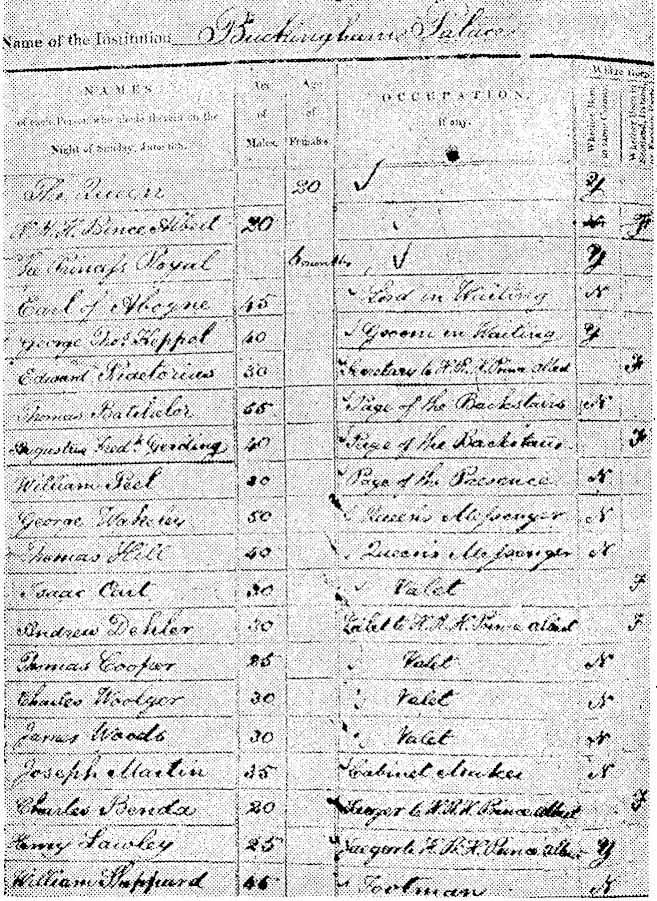 Name of the Institution Buckingham Palace
NAMES
of each Person who abode therein on the
Night of Sunday, June 6th.
Age
of
Males.
Age
of
Females.
OCCUPATION,
if any.
Where Born
Whether Born
in same County
Whether Born in
Scotland, Ireland,
or Foreign Parts
The Queen 20 Y
H.R.H. Prince Albert 20 F
The Princess Royal 6 months Y
Earl of Aboyne 45 Lord in Waiting N
George Thos Keppel 40 Groom in Waiting Y
Edward Praetorius 30 Secretary to H.R.H. Prince Albert F
Thomas Batchelor 55 Page of the Backstairs N
Augustus Fredk Gerding 40 Page of the Backstairs F
William Peel 30 Page of the Presence N
George Wakeley 50 Queen's Messenger N
Thomas Hill 40 Queen's Messenger N
Isaac Cart 30 Valet F
Andrew Dehler 30 Valet to H.R.H. Prince Albert F
Thomas Cooper 25 Valet N
Charles Woolger 30 Valet N
James Woods 30 Valet N
Joseph Martin 35 Cabinet Maker N
Charles Benda 20 Jaeger to H.R.H. Prince Albert F
Henry Lawley 25 Jaeger to H.R.H. Prince Albert Y
William Sheppard 45 Footman N